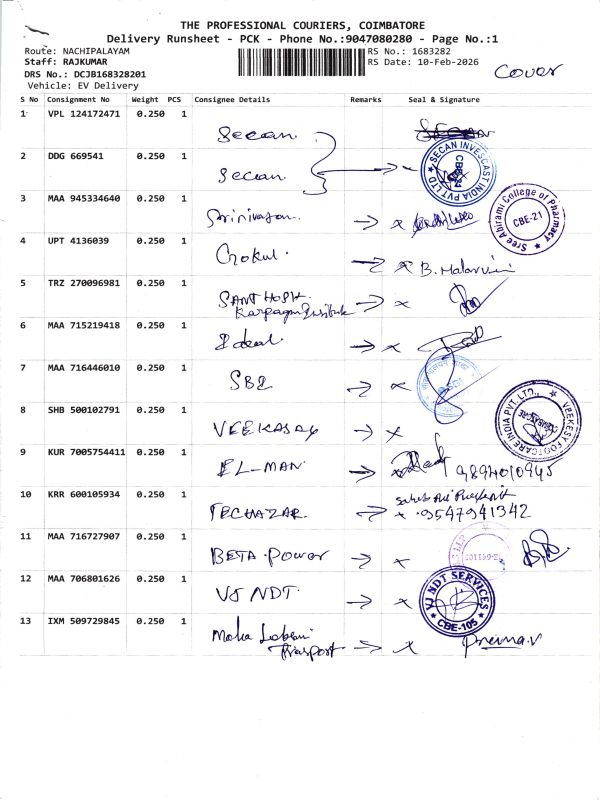 THE PROFESSIONAL COURIERS, COIMBATORE
Delivery Runsheet - PCK - Phone No.:9047080280 - Page No.:1
Route: NACHIPALAYAM
RS No.: 1683282
Staff: RAJKUMAR
RS Date: 10-Feb-2026
DRS No.: DCJB168328201
Cover
Vehicle: EV Delivery
S No Consignment No Weight PCS Consignee Details Remarks Seal & Signature
1 VPL 124172471 0.250 1 Secan
2 DDG 669541 0.250 1 Secan
SECAN INVESCAST INDIA PVT LTD
3 MAA 945334640 0.250 1 Srinivasan
Sree Abirami College of Pharmacy CBE-21
4 UPT 4136039 0.250 1 Gokul B. Malarvizi
5 TRZ 270096981 0.250 1 SANTHOSH.
Karpagam Institute
6 MAA 715219418 0.250 1 Ideal
7 MAA 716446010 0.250 1 SBI
8 SHB 500102791 0.250 1 VEEKASAY
VEEKESY FOOTCARE INDIA PVT. LTD.,
9 KUR 7005754411 0.250 1 EL-MAN 9894010945
10 KRR 600105934 0.250 1 TECHAZAR 9547941342
11 MAA 716727907 0.250 1 BETA Power
12 MAA 706801626 0.250 1 VJ NDT
VJ NDT SERVICES CBE-105
13 IXM 509729845 0.250 1 Maha Laksmi
Trasport Prema.v